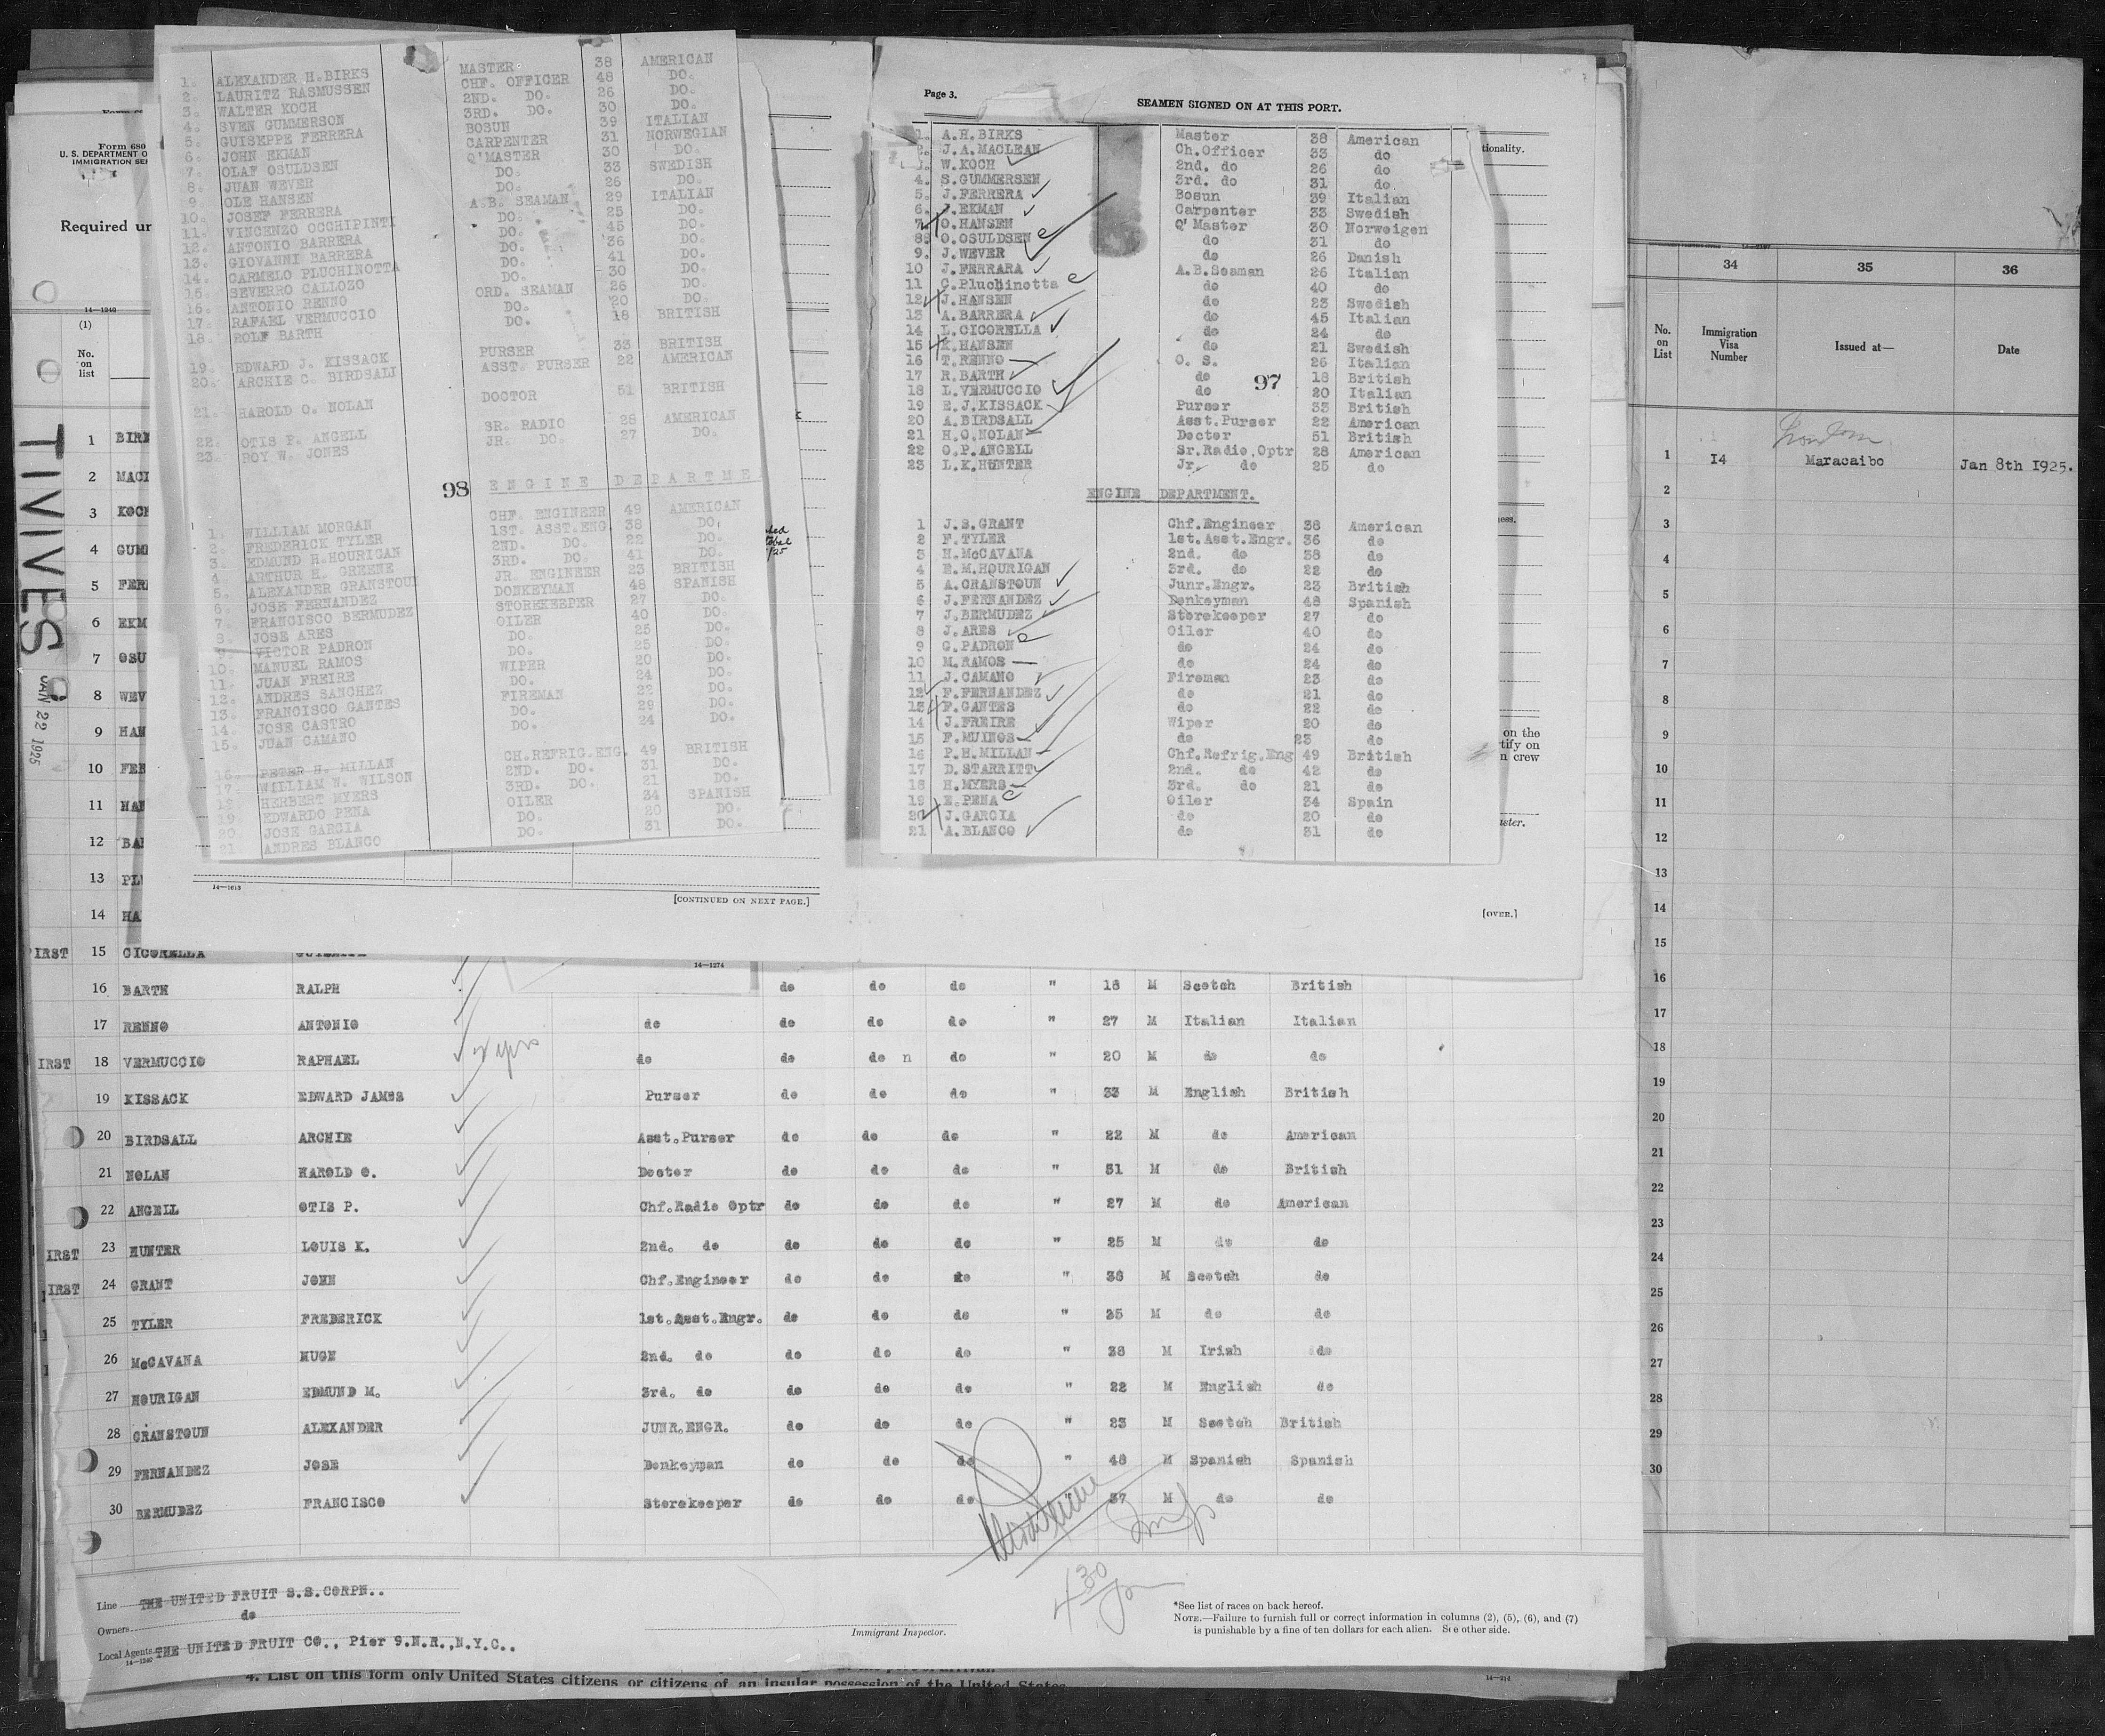 1. ALEXANDER H.BIRKS MASTER 38 AMERICAN
2. LAURITZ RASMUSSEN CHF. OFFICER 48 DO.
3. WALTER KOCH 2ND. DO. 26 DO.
4. SVEN GUMMERSON 3RD. DO. 30 DO.
5. GUISEPPE FERRERA BOSUN 39 ITALIAN
6. JOHN EKMAN CARPENTER 31 NORWEGIAN
7. OLAF OSULDSEN Q'MASTER 30 DO.
8. JUAN WEVER DO. 33 SWEDISH
9. OLE HANSEN DO. 26 DO.
10. JOSEF FERRERA A.B. SEAMAN 29 ITALIAN
11. VINCENZO OCCHIPINTI DO. 25 DO.
12. ANTONIO BARRERA DO. 45 DO.
13. GIOVANNI BARRERA DO. 36 DO.
14. CARMELO PLUCHINOTTA DO. 41 DO.
15. SEVERRO CALLOZO DO. 30 DO.
16. ANTONIO RENNO ORD. SEAMAN 26 DO.
17. RAFAEL VERMUCCIO DO. 20 DO.
18. ROLF BARTH DO. 18 BRITISH
19. EDWARD J. KISSACK PURSER 33 BRITISH
20. ARCHIE C. BIRDSALL ASST. PURSER 22 AMERICAN
21. HAROLD O. NOLAN DOCTOR 51 BRITISH
22. OTIS P. ANGELL SR. RADIO 28 AMERICAN
23. ROY W. JONES JR. DO. 27 DO.
98 ENGINE DEPARTME
1. WILLIAM MORGAN CHF. ENGINEER 49 AMERICAN
2. FREDERICK TYLER 1ST. ASST.ENG. 38 DO.
3. EDMUND H.HOURIGAN 2ND. DO. 22 DO.
4. ARTHUR H. GREENE 3RD. DO. 41 DO.
5. ALEXANDER GRANSTOUN JR. ENGINEER 23 BRITISH
6. JOSE FERNANDEZ DONKEYMAN 48 SPANISH
7. FRANCISCO BERMUDEZ STOREKEEPER 27 DO.
8. JOSE ARES OILER 40 DO.
9. VICTOR PADRON DO. 25 DO.
10. MANUEL RAMOS DO. 25 DO.
11. JUAN FREIRE WIPER 20 DO.
12. ANDRES SANCHEZ DO. 24 DO.
13. FRANCISCO GANTES FIREMAN 22 DO.
14. JOSE CASTRO DO. 29 DO.
15. JUAN CAMANO DO. 24 DO.
16. PETER H. MILLAN CH.REFRIG.ENG. 49 BRITISH
17. WILLIAM W. WILSON 2ND. DO. 31 DO.
18 HERBERT MYERS 3RD. DO. 21 DO.
19 EDWARDO PENA OILER 34 SPANISH
20. JOSE GARCIA DO. 20 DO.
21. ANDRES BLANCO DO. 31 DO.
14—1613
[CONTINUED ON NEXT PAGE.]
Page 3.
SEAMEN SIGNED ON AT THIS PORT.
tionality.
1. A.H.BIRKS Master 38 American
2. J.A.MACLEAN Ch.Officer 33 do
3. W.KOCH 2nd. do 26 do
4. S.GUMMERSEN 3rd. do 31 do
5. J.FERRERA Bosun 39 Italian
6. J.EKMAN Carpenter 33 Swedish
7. O.HANSEN Q'Master 30 Norweigen
8. O.OSULDSEN do 31 do
9. J.WEVER do 26 Danish
10 J.FERRARA A.B.Seaman 26 Italian
11 C.Pluchinotta do 40 do
12 J.HANSEN do 23 Swedish
13 A.BARRERA do 45 Italian
14 L.CICORELLA do 24 do
15 K.HANSEN do 21 Swedish
16 T.RENNO O. S. 26 Italian
17 R.BARTH do 97 18 British
18 L.VERMUCCIO do 20 Italian
19 E.J.KISSACK Purser 33 British
20 A.BIRDSALL Asst.Purser 22 American
21 H.O.NOLAN Doctor 51 British
22 O.P.ANGELL Sr.Radio.Optr 28 American
23 L.K.HUNTER Jr. do 25 do
ENGINE DEPARTMENT.
1 J.S.GRANT Chf.Engineer 38 American
2 F.TYLER 1st.Asst.Engr. 36 do
3 H.McCAVANA 2nd. do 38 do
4 E.M.HOURIGAN 3rd. do 22 do
5 A.CRANSTOUN Junr.Engr. 23 British
6 J.FERNANDEZ Donkeyman 48 Spanish
7 J.BERMUDEZ Storekeeper 27 do
8 J.ARES Oiler 40 do
9 G.PADRON do 24 do
10 M.RAMOS do 24 do
11 J.CAMANO Fireman 23 do
12 F.FERNANDEZ do 21 do
13 F.GANTES do 22 do
14 J.FREIRE Wiper 20 do
15 F.MUINOS do 23 do
16 P.H.MILLAN Chf.Refrig.Eng 49 British
17 D.STARRITT 2nd. do 42 do
18 H.MYERS 3rd. do 21 do
19 E.PENA Oiler 34 Spain
20 J.GARCIA do 20 do
21 A.BLANCO do 31 do
on the
tify on
n crew
[OVER.]
Form 680
U. S. DEPARTMENT O
IMMIGRATION SER
Required un
14—1240
(1)
No. on list
TIVIVES
JAN 22 1925
1 BIRK
2 MACL
3 KOCH
4 GUMM
5 FERR
6 EKM
7 OSU
8 WEV
9 HAN
10 FER
11 HAN
12 BAR
13 PLU
14 HA
IRST 15 CICORELLA
14—1274
16 BARTH RALPH do do do " 18 M Scotch British
17 RENNO ANTONIO do do do do " 27 M Italian Italian
IRST 18 VERMUCCIO RAPHAEL 2 yrs do do do n do " 20 M do do
19 KISSACK EDWARD JAMES Purser do do do " 33 M English British
20 BIRDSALL ARCHIE Asst.Purser do do do " 22 M do American
21 NOLAN HAROLD O. Doctor do do do " 51 M do British
22 ANGELL OTIS P. Chf.Radio Optr do do do " 27 M do American
IRST 23 HUNTER LOUIS K. 2nd. do do do do " 25 M do do
IRST 24 GRANT JOHN Chf.Engineer do do do " 38 M Scotch do
25 TYLER FREDERICK 1st.Asst.Engr. do do do " 35 M do do
26 McCAVANA HUGH 2nd. do do do do " 38 M Irish do
27 HOURIGAN EDMUND M. 3rd. do do do do " 22 M English do
28 CRANSTOUN ALEXANDER JUNR.ENGR. do do do " 23 M Scotch British
29 FERNANDEZ JOSE Donkeyman do do do " 48 M Spanish Spanish
30 BERMUDEZ FRANCISCO Storekeeper do do do " 37 M do do
4 30
Line THE UNITED FRUIT S.S.CORPN..
Owners do
Local Agents THE UNITED FRUIT CO., Pier 9.N.R.,N.Y.C..
14—1240
Immigrant Inspector.
*See list of races on back hereof.
NOTE.—Failure to furnish full or correct information in columns (2), (5), (6), and (7)
is punishable by a fine of ten dollars for each alien. See other side.
4. List on this form only United States citizens or citizens of an insular possession of the United States
14—214
34 35 36
No. on List Immigration Visa Number Issued at— Date
1 14 Maracaibo Jan 8th 1925.
2
3
4
5
6
7
8
9
10
11
12
13
14
15
16
17
18
19
20
21
22
23
24
25
26
27
28
29
30